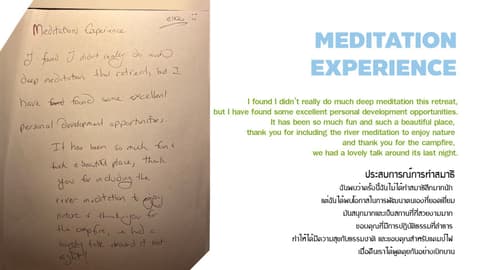 enw :)
Meditations Experience
I found I didn't really do much
deep meditation this retreat, but I
have found some excellent
personal development opportunities.
It has been so much fun &
such a beautiful place, thank
you for including the
river meditation to enjoy
nature & thank you for
the campfire, we had a
lovely talk around it last
night!
MEDITATION
EXPERIENCE
I found I didn't really do much deep meditation this retreat,
but I have found some excellent personal development opportunities.
It has been so much fun and such a beautiful place,
thank you for including the river meditation to enjoy nature
and thank you for the campfire,
we had a lovely talk around its last night.
ประสบการณ์การทำสมาธิ
ฉันพบว่าครั้งนี้ฉันไม่ได้ทำสมาธิลึกมากนัก
แต่ฉันได้พบโอกาสในการพัฒนาตนเองที่ยอดเยี่ยม
มันสนุกมากและเป็นสถานที่ที่สวยงามมาก
ขอบคุณที่มีการปฏิบัติธรรมที่ลำธาร
ทำให้ได้มีความสุขกับธรรมชาติ และขอบคุณสำหรับแคมป์ไฟ
เมื่อคืนเราได้พูดคุยกันอย่างเบิกบาน